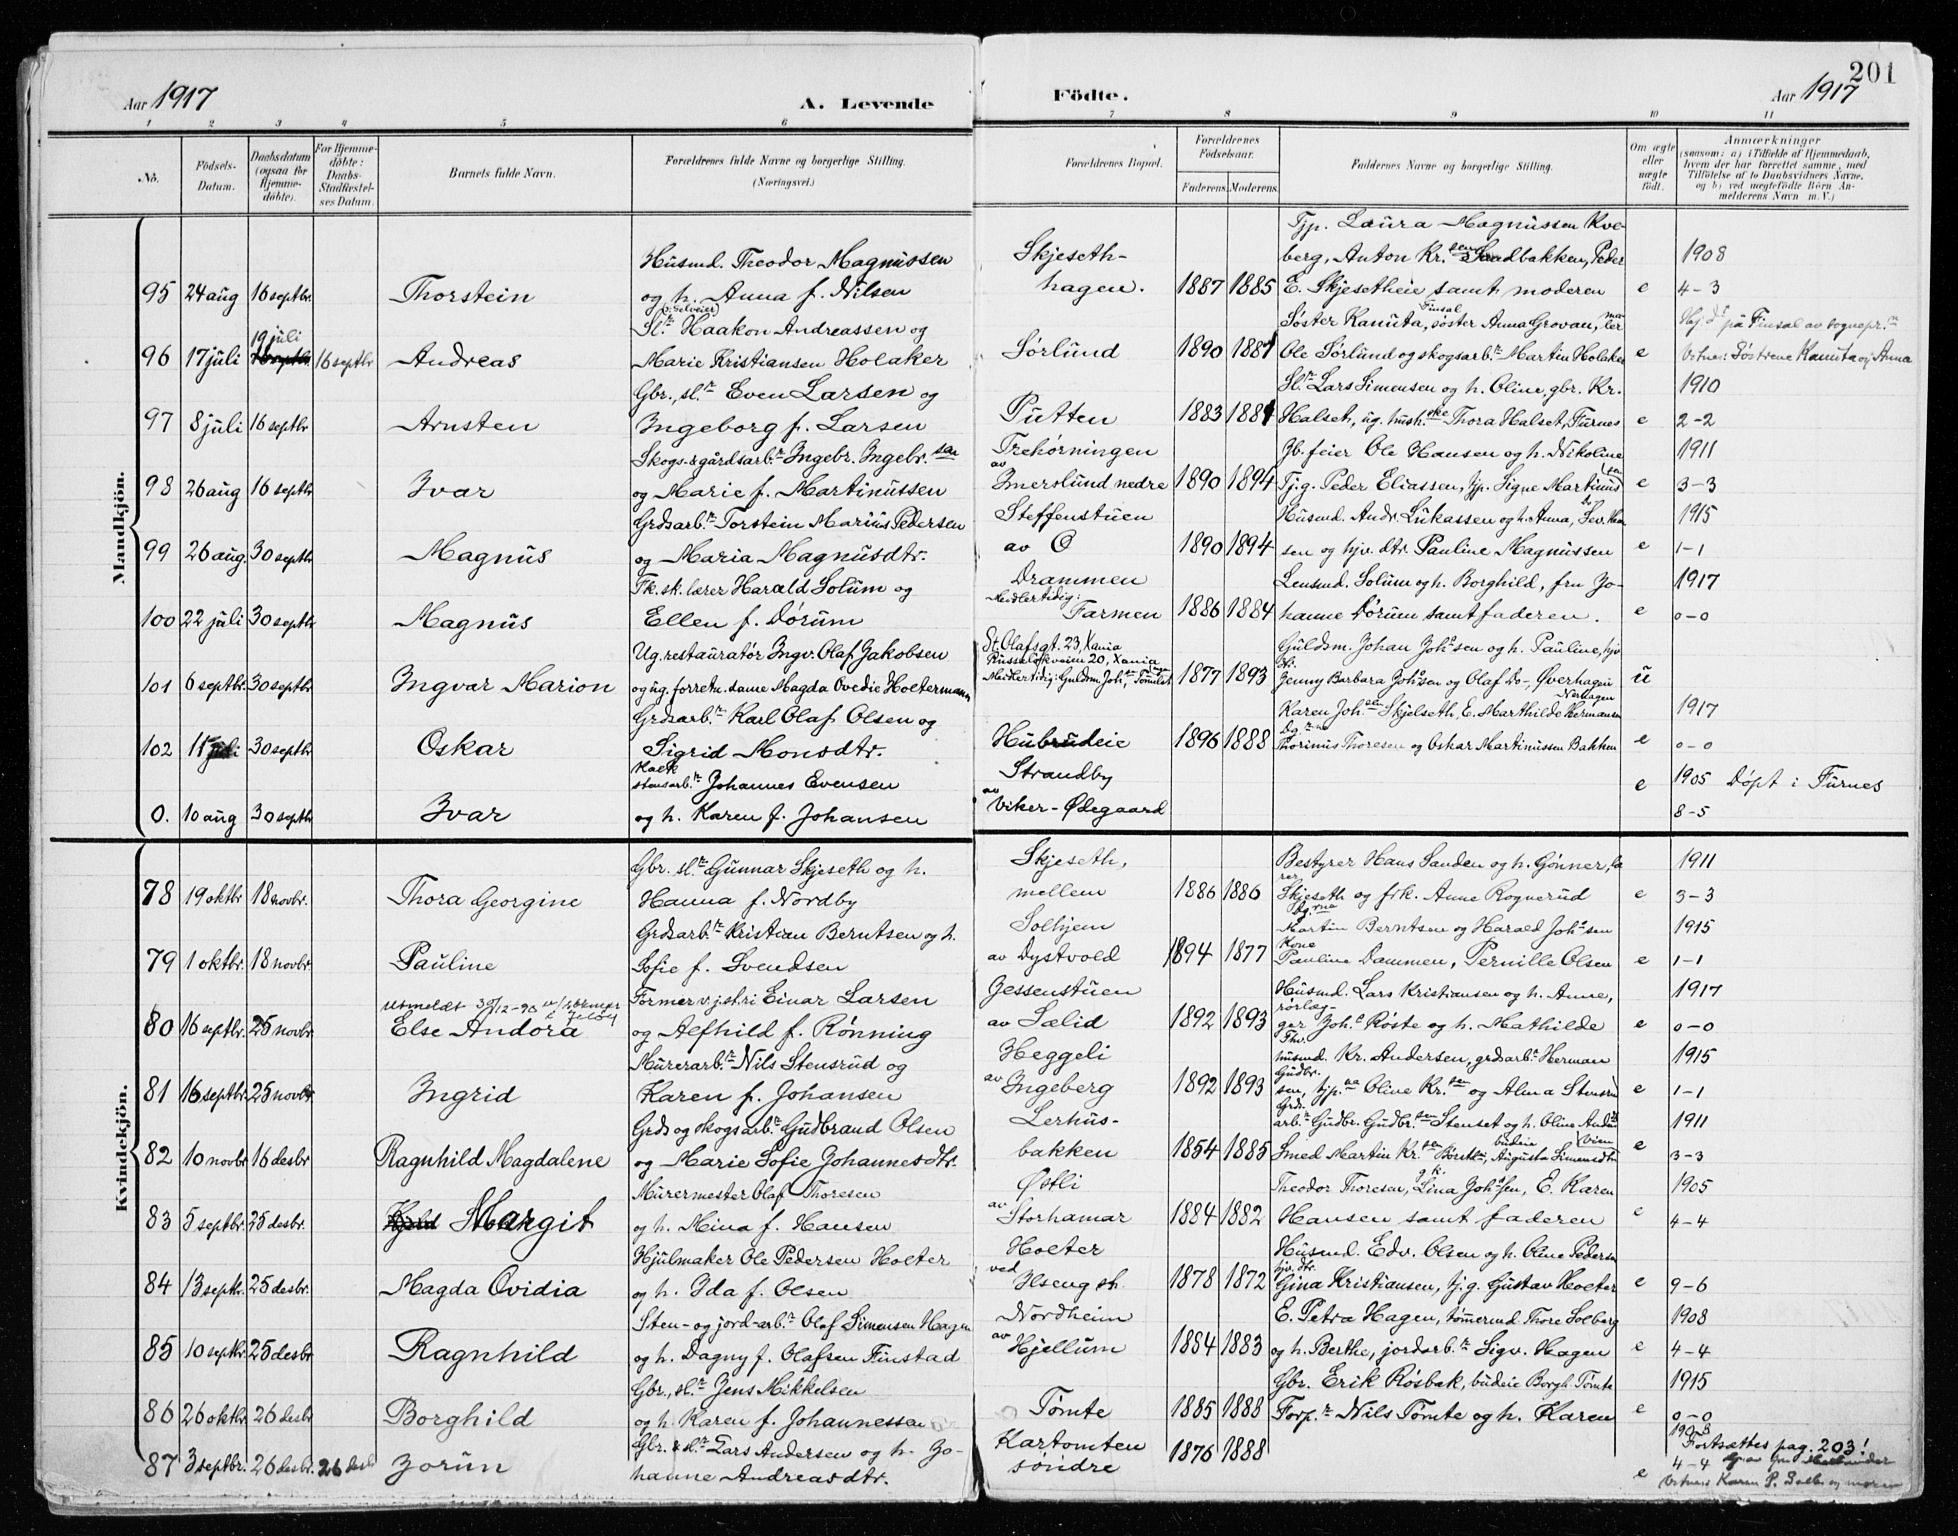 201
Aar 1917
A. Levende
Födte.
Aar 1917
1 2 3 4 5 6 7 8 9 10 11
No.
Födsels-Datum.
Daabsdatum (ogsaa for Hjemme-döbte).
For Hjemme-döbte: Daabs-Stadfæstel-ses Datum.
Barnets fulde Navn.
Forældrenes fulde Navne og borgerlige Stilling.
(Næringsvei.)
Forældrenes Bopæl.
Forældrenes Födselsaar.
Faderens. Moderens.
Faddernes Navne og borgerlige Stilling.
Om ægte eller uægte födt.
Anmærkninger
(saasom: a) i Tilfælde af Hjemmedaab,
hvem der har forrettet samme, med
Tilföielse af to Daabsvidners Navne.
og b) ved uægtefödte Börn An-
melderens Navn m. V.)
Mandkjön.
Tjp. Laura Magnussen Kve-
Husmd. Theodor Magnussen
Skjeseth-
berg, Anton Kr.sen Sandbakken, Peder
1908
95 24 aug 16 septbr. Thorstein
og h. Anna f. Nilsen
hagen. 1887 1885
E. Skjesetheie samt moderen e 4-3
(: Selveier)
Sl.r Haakon Andreassen og
Søster Kanuta, søster Anna Grovan, maler
Finsal
Hj. d. på Finsal av sognepr.
19 juli
96 17 juli 16 septbr Andreas
Marie Kristiansen Holaker
Sørlund 1890 1887
Ole Sørlund og skogsarb.r Martin Holaker e
Vitner: Søstrene Kanuta og Anna
Gbr., sl.r Even Larsen og
Sl.r Lars Simensen og h. Oline, gbr. Kr.
1910
97 8 juli 16 septbr Arnsten
Ingeborg f. Larsen
Putten 1883 1884
Halset, ug. hush.ske Thora Halset, Furnes e 2-2
Skogs- & gårdsarb.r Ingebr. Ingebr.sen
Trehørningen
Jb. feier Ole Hansen og h. Nikoline
1911
98 26 aug 16 septbr Ivar
og Marie f. Martinussen
av Imerslund nedre 1890 1894
Tj.g. Peder Eliassen, tjp. Signe Martinussen e 3-3
Grdsarb.r Torstein Marius Pedersen
Steffenstuen
Husmd. Andr. Lukassen og h. Anna, Sev. Han
1915
99 26 aug. 30 septbr Magnus
og Maria Magnusdtr.
av O 1890 1894
sen og hjv. dtr. Pauline Magnussen e 1-1
Tk. sk. lærer Harald Solum og
Drammen
Lensmd. Solum og h. Borghild, fru Jo-
1917
100 22 juli 30 septbr Magnus
Ellen f. Dørum
Midlertidig: Farmen 1886 1884
hanne Dørum samt faderen. e 0-0
Ug. restauratør Ingv. Olaf Jakobsen
St. Olafsgt. 23, Xania
Russeløkveien 20, Xania
Guldsm. Johan Joh.sen og h. Pauline, hjv
101 6 septbr. 30 septbr Ingvar Marion
og ug. forretn.dame Magda Ovedie Holtermann
Midlertidig: Guldsm. Joh.sen, Tomter 1877 1893
Jenny Barbara Joh.sen og Olaf Do-, Øverhagen u
Grdsarb.r Karl Olaf Olsen og
Karen Joh.sen Skjelseth, E. Marthilde Hermansen
Nerhagen
1917
102 11 juli 30 septbr Oskar
Sigrid Monsdtr.
Hubrudeie 1896 1888
Thorinus Thoresen og Oskar Martinussen Bakken e 0-0
Kalkstensarb.r Johannes Evensen
Strandby
e 1905 Døpt i Furnes
0. 10 aug 30 septbr Ivar
og h. Karen f. Johansen
av Viker-Ødegaard
8-5
Kvindekjön.
Gbr. sl.r Gunnar Skjeseth og h.
Skjeseth,
Bestyrer Hans Sanden og h. Gønner, læ
1911
78 19 oktbr 18 novbr. Thora Georgine
Hanna f. Nordby
mellem 1886 1886
rer Skjeseth og frk. Anne Rognerud e 3-3
Grdsarb.r Kristian Berntsen og h.
Solhjem
Martin Berntsen og Harald Joh.sen
1915
79 1 oktbr. 18 novbr. Pauline
Sofie f. Svendsen
av Dystvold 1894 1877
Kone Pauline Dammen, Pernille Olsen e 1-1
Former v. j.st.ri Einar Larsen
Gessenstuen
Husmd. Lars Kristiansen og h. Anne,
1917
utmeldt 30/12-90
80 16 septbr. 25 novbr. Else Andora
og Alfhild f. Rønning
av Sælid 1892 1893
rørlæg-ger Joh.s Røste og h. Mathilde e 0-0
Murerarb.r Nils Stensrud og
Heggeli
husmd. Kr. Andersen, grdsarb.r Herman
1915
81 16 septbr. 25 novbr Ingrid
Karen f. Johansen
av Ingeberg 1892 1893
Gudbr.sen, tjp. Oline Kr.sen og Alma Stensrud e 1-1
Grds og skogsarb.r Gudbrand Olsen
Lerhus-
Grds.arb.r Gudbr. Gudbr.sen Stenset og h. Oline
1911
82 10 novbr 16 desbr. Ragnhild Magdalene
og Marie Sofie Johannesdtr.
bakken 1854 1885
Smed Martin Kr.sen, budeie Augusta Simensdtr e 3-3
Murermester Olaf Thoresen
Østli
Theodor Thoresen, gk. Lina Joh.sen, E. Karen
1905
83 5 septbr. 25 desbr. Margit
og h. Mina f. Hansen
av Storhamar 1884 1882
Hansen samt faderen e 4-4
Hjulmaker Ole Pedersen Holter
Holter
Husmd. Edv. Olsen og h. Oline Pedersen
84 13 septbr. 25 desbr. Magda Ovidia
og h. Ida f. Olsen
ved Ilseng st. 1878 1872
hjv. dtr. Gina Kristiansen, tj.g. Gustav Holter e 9-6
Sten- og jord-arb.r Olaf Simensen Hagen
Nordheim
E. Petra Hagen, tømmermd Thore Solberg
1908
85 10 septbr 25 desbr Ragnhild
og h. Dagny f. Olafsen Finstad
av Hjellum 1884 1883
og h. Berthe, jordarb.r Sigv. Hagen e 4-4
Gbr., sl.r Jens Mikkelsen
Gbr. Erik Rösbak, budeie Borgh. Tomte
1915
86 26 oktbr 26 desbr Borghild
og h. Karen f. Johannessen
Tomte 1885 1888
Forp.r Nils Tomte og h. Karen e 0-0
Gbr. & sl.r Lars Andersen og h. Jo-
Kartomten 1876 1888
1908
Fortsættes pag. 203!
87 3 septbr. 26 desbr. 26 desb Jorun
hanne Andreasdtr.
søndre
e 4-4
Vitner: Karen P. Dalby og moren